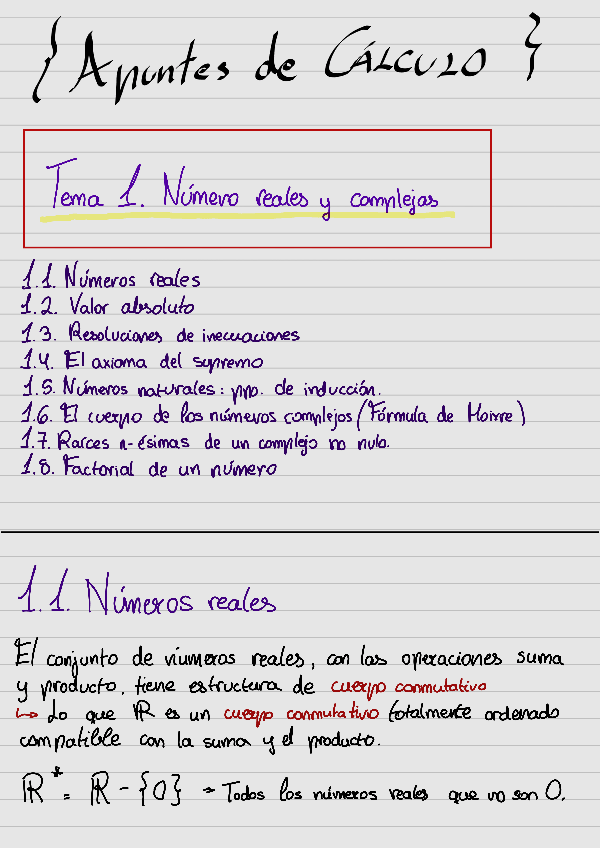 { Apuntes de CÁLCULO }
Tema 1. Número reales y complejas
1.1. Números reales
1.2. Valor absoluto
1.3. Resoluciones de inecuaciones
1.4. El axioma del supremo
1.5. Números naturales: ppo. de inducción.
1.6. El cuerpo de los números complejos (Fórmula de Moivre)
1.7. Raíces n-ésimas de un complejo no nulo.
1.8. Factorial de un número
1.1. Números reales
El conjunto de números reales, con las operaciones suma
y producto, tiene estructura de cuerpo conmutativo
↳ Lo que ℝ es un cuerpo conmutativo totalmente ordenado
compatible con la suma y el producto.
ℝ* = ℝ - {0} → Todos los números reales que no son 0.